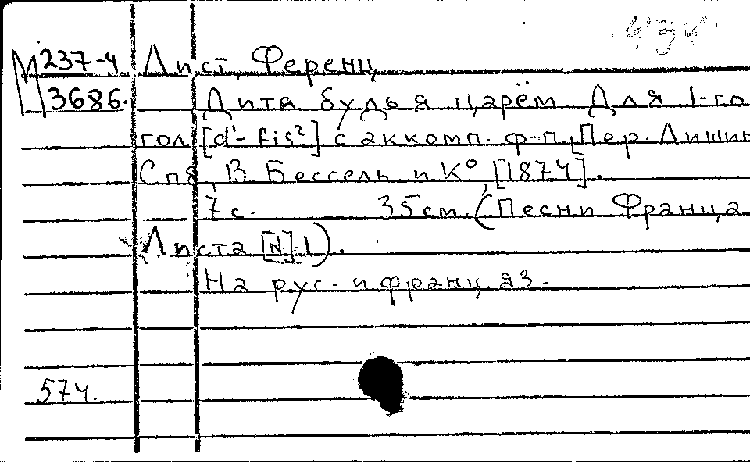 М 237-4 Лист, Ференц
3686. Дитя будь я царём Для 1-го
гол [d¹-fis²] с аккомп. ф-п. Пер. Лишин
Спб, В. Бессель и К⁰, [1874].
7 с. 35 см. (Песни Франца
Листа [N] 1).
На рус. и франц. яз.
574.